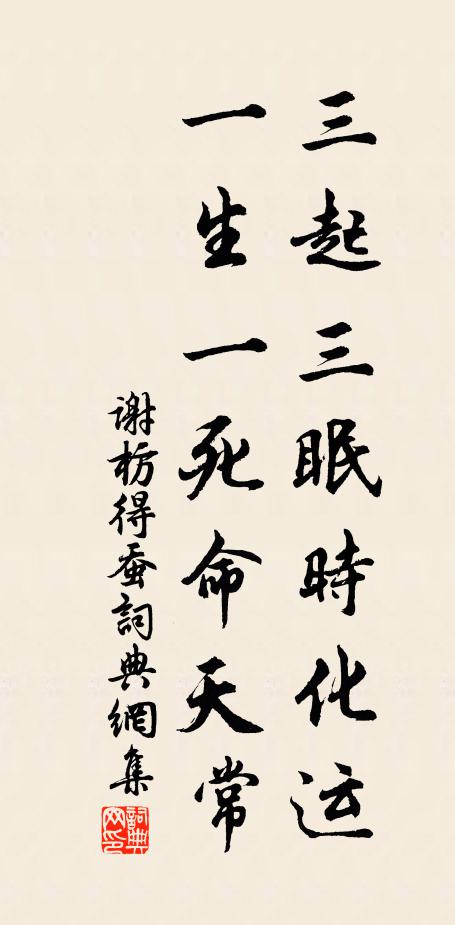 三起三眠時化运
一生一死命天常
谢枋得蚕詞典網集
詞典网印